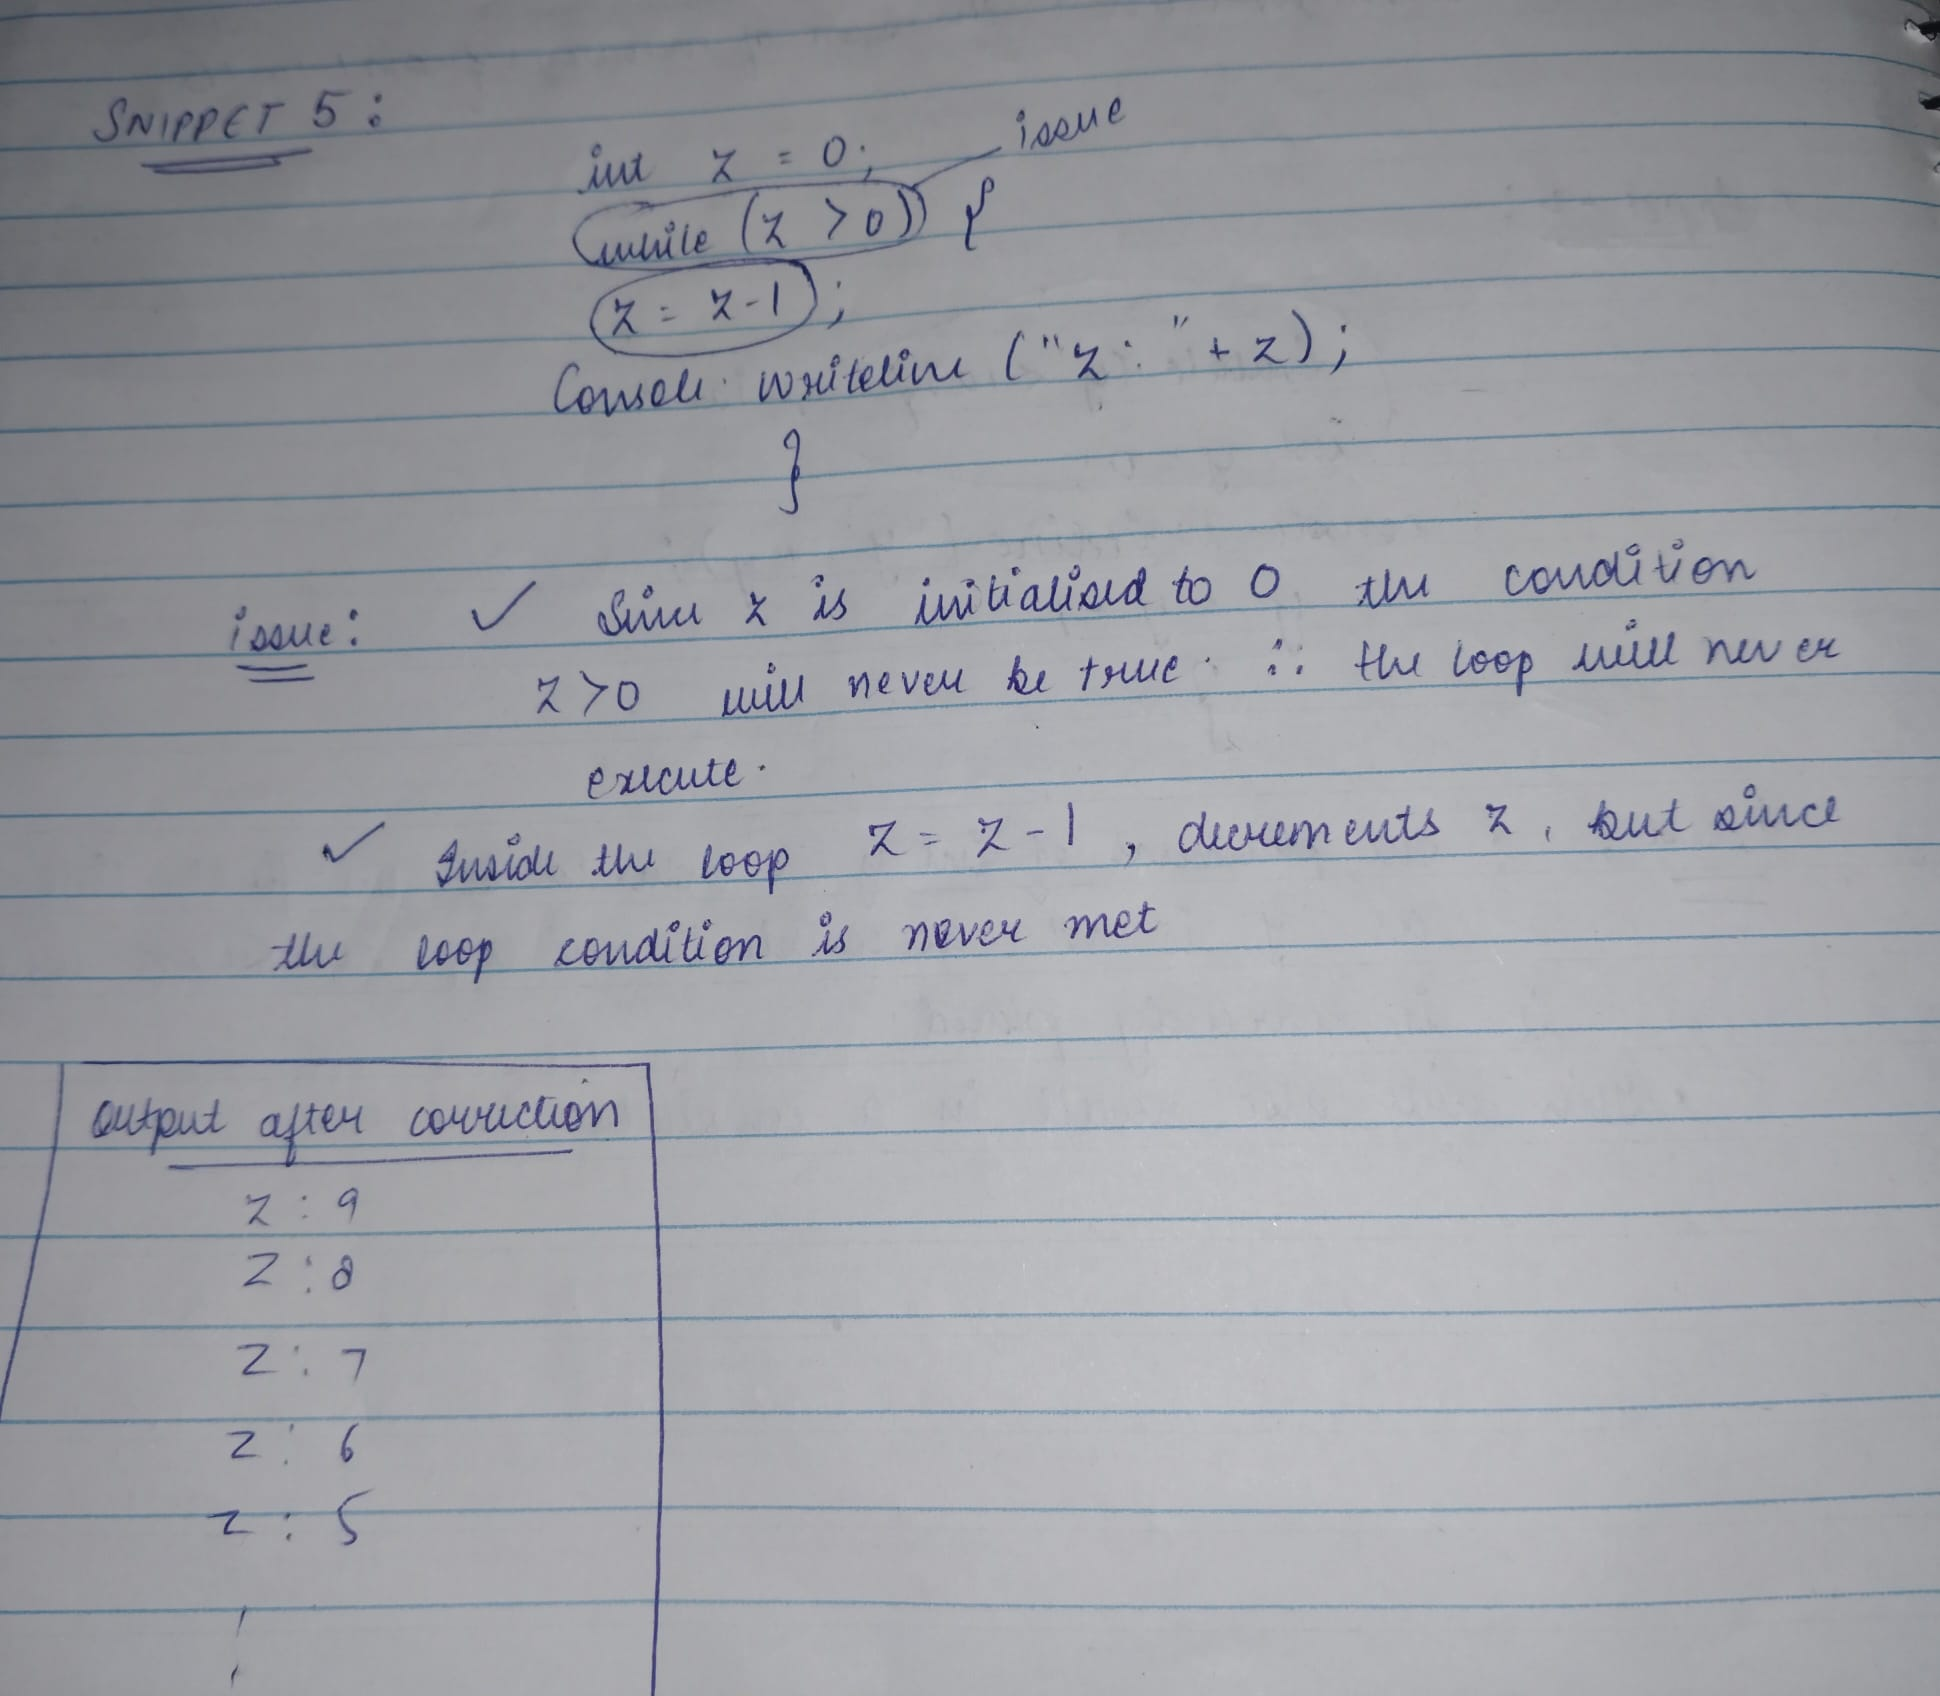 SNIPPET 5:
issue
int z = 0;
while (z > 0) {
z = z-1;
Console. writeline ("z: " + z);
}
issue: ✓ Since z is initialised to 0 the condition
z > 0 will never be true. ∴ the loop will never
execute.
✓ Inside the loop z = z - 1, decrements z, but since
the loop condition is never met
Output after correction
z : 9
z : 8
z : 7
z : 6
z : 5